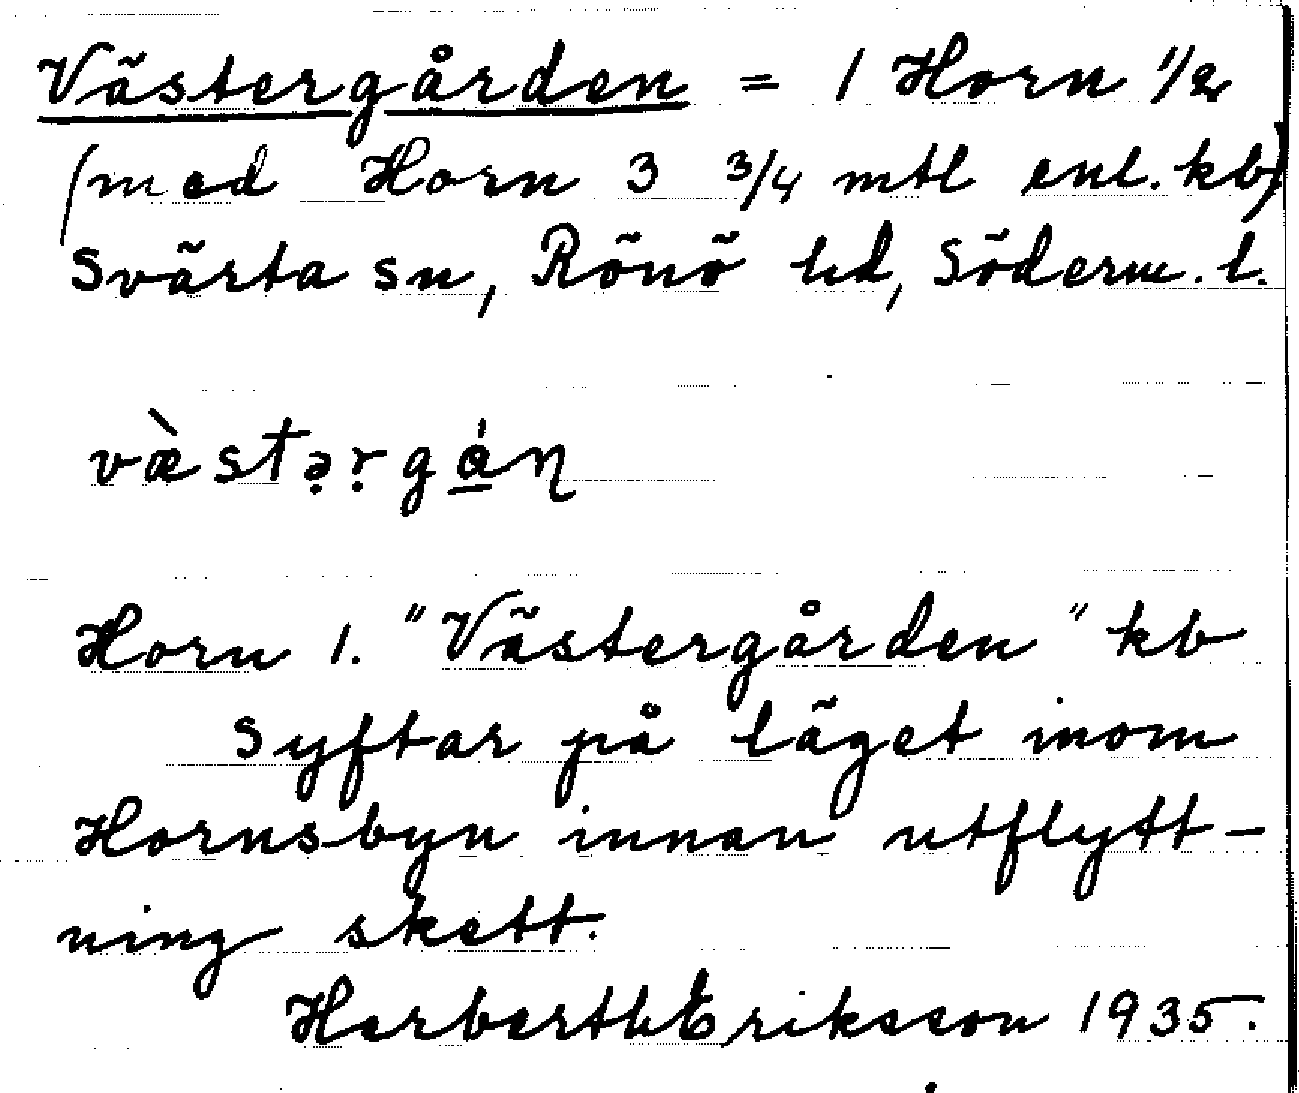 Västergården = 1 Horn 1/2
(med Horn 3 3/4 mtl enl. kb)
Svärta sn, Rönö hd, Söderm. l.
væ̀stə̣ṛgɑ̲́ɳ
Horn 1. "Västergården" kb
Syftar på läget inom
Hornsbyn innan utflytt-
ning skett.
Herberth Eriksson 1935.